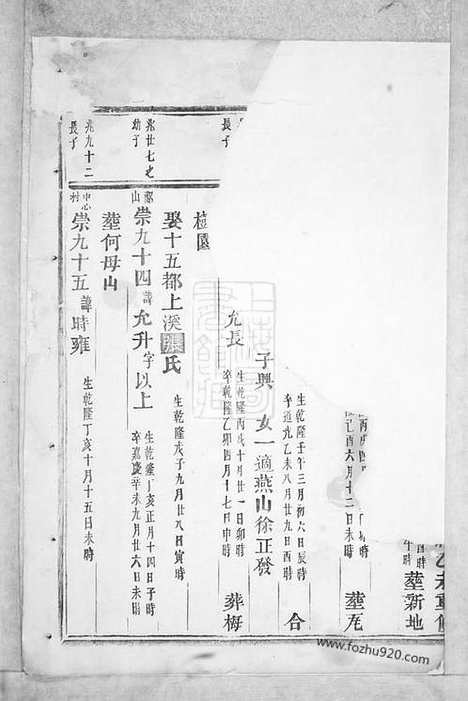 乙未重修
酉時
午時 葬新地
己酉六月十二日未時 葬
生乾隆壬午三月初六日辰時
卒道光乙未八月廿九日酉時 合
子興 女一適燕山徐正發
允長 生乾隆丙戌十月廿一日卯時
卒乾隆乙卯四月十七日申時 葬梅
植園
長子
娶十五都上溪張氏 生乾隆戊子九月廿八日寅時
兆廿七之
幼子
山
崇九十四諱允升字以上 生乾隆丁亥正月十四日子時
卒嘉慶辛未九月廿六日未時
葬何母山
兆九十二
長子
村
崇九十五諱時雍 生乾隆丁亥十月十五日未時
www.fozhu920.com